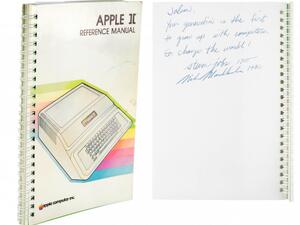 APPLE II
REFERENCE MANUAL
apple computer inc.
Julian,
Your generation is the first
to grow up with computers.
Go change the world!
steven jobs 1980
Mike Markkula 1980